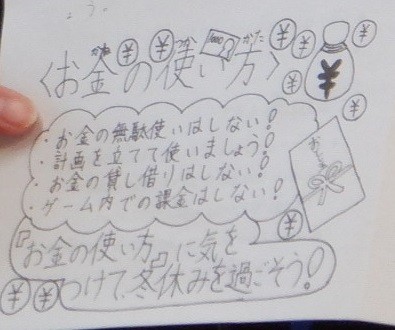 〈お金の使い方〉
・お金の無駄使いはしない!
・計画を立てて使いましょう!
・お金の貸し借りはしない!
・ゲーム内での課金はしない!
『お金の使い方』に気を
つけて、冬休みを過ごそう!